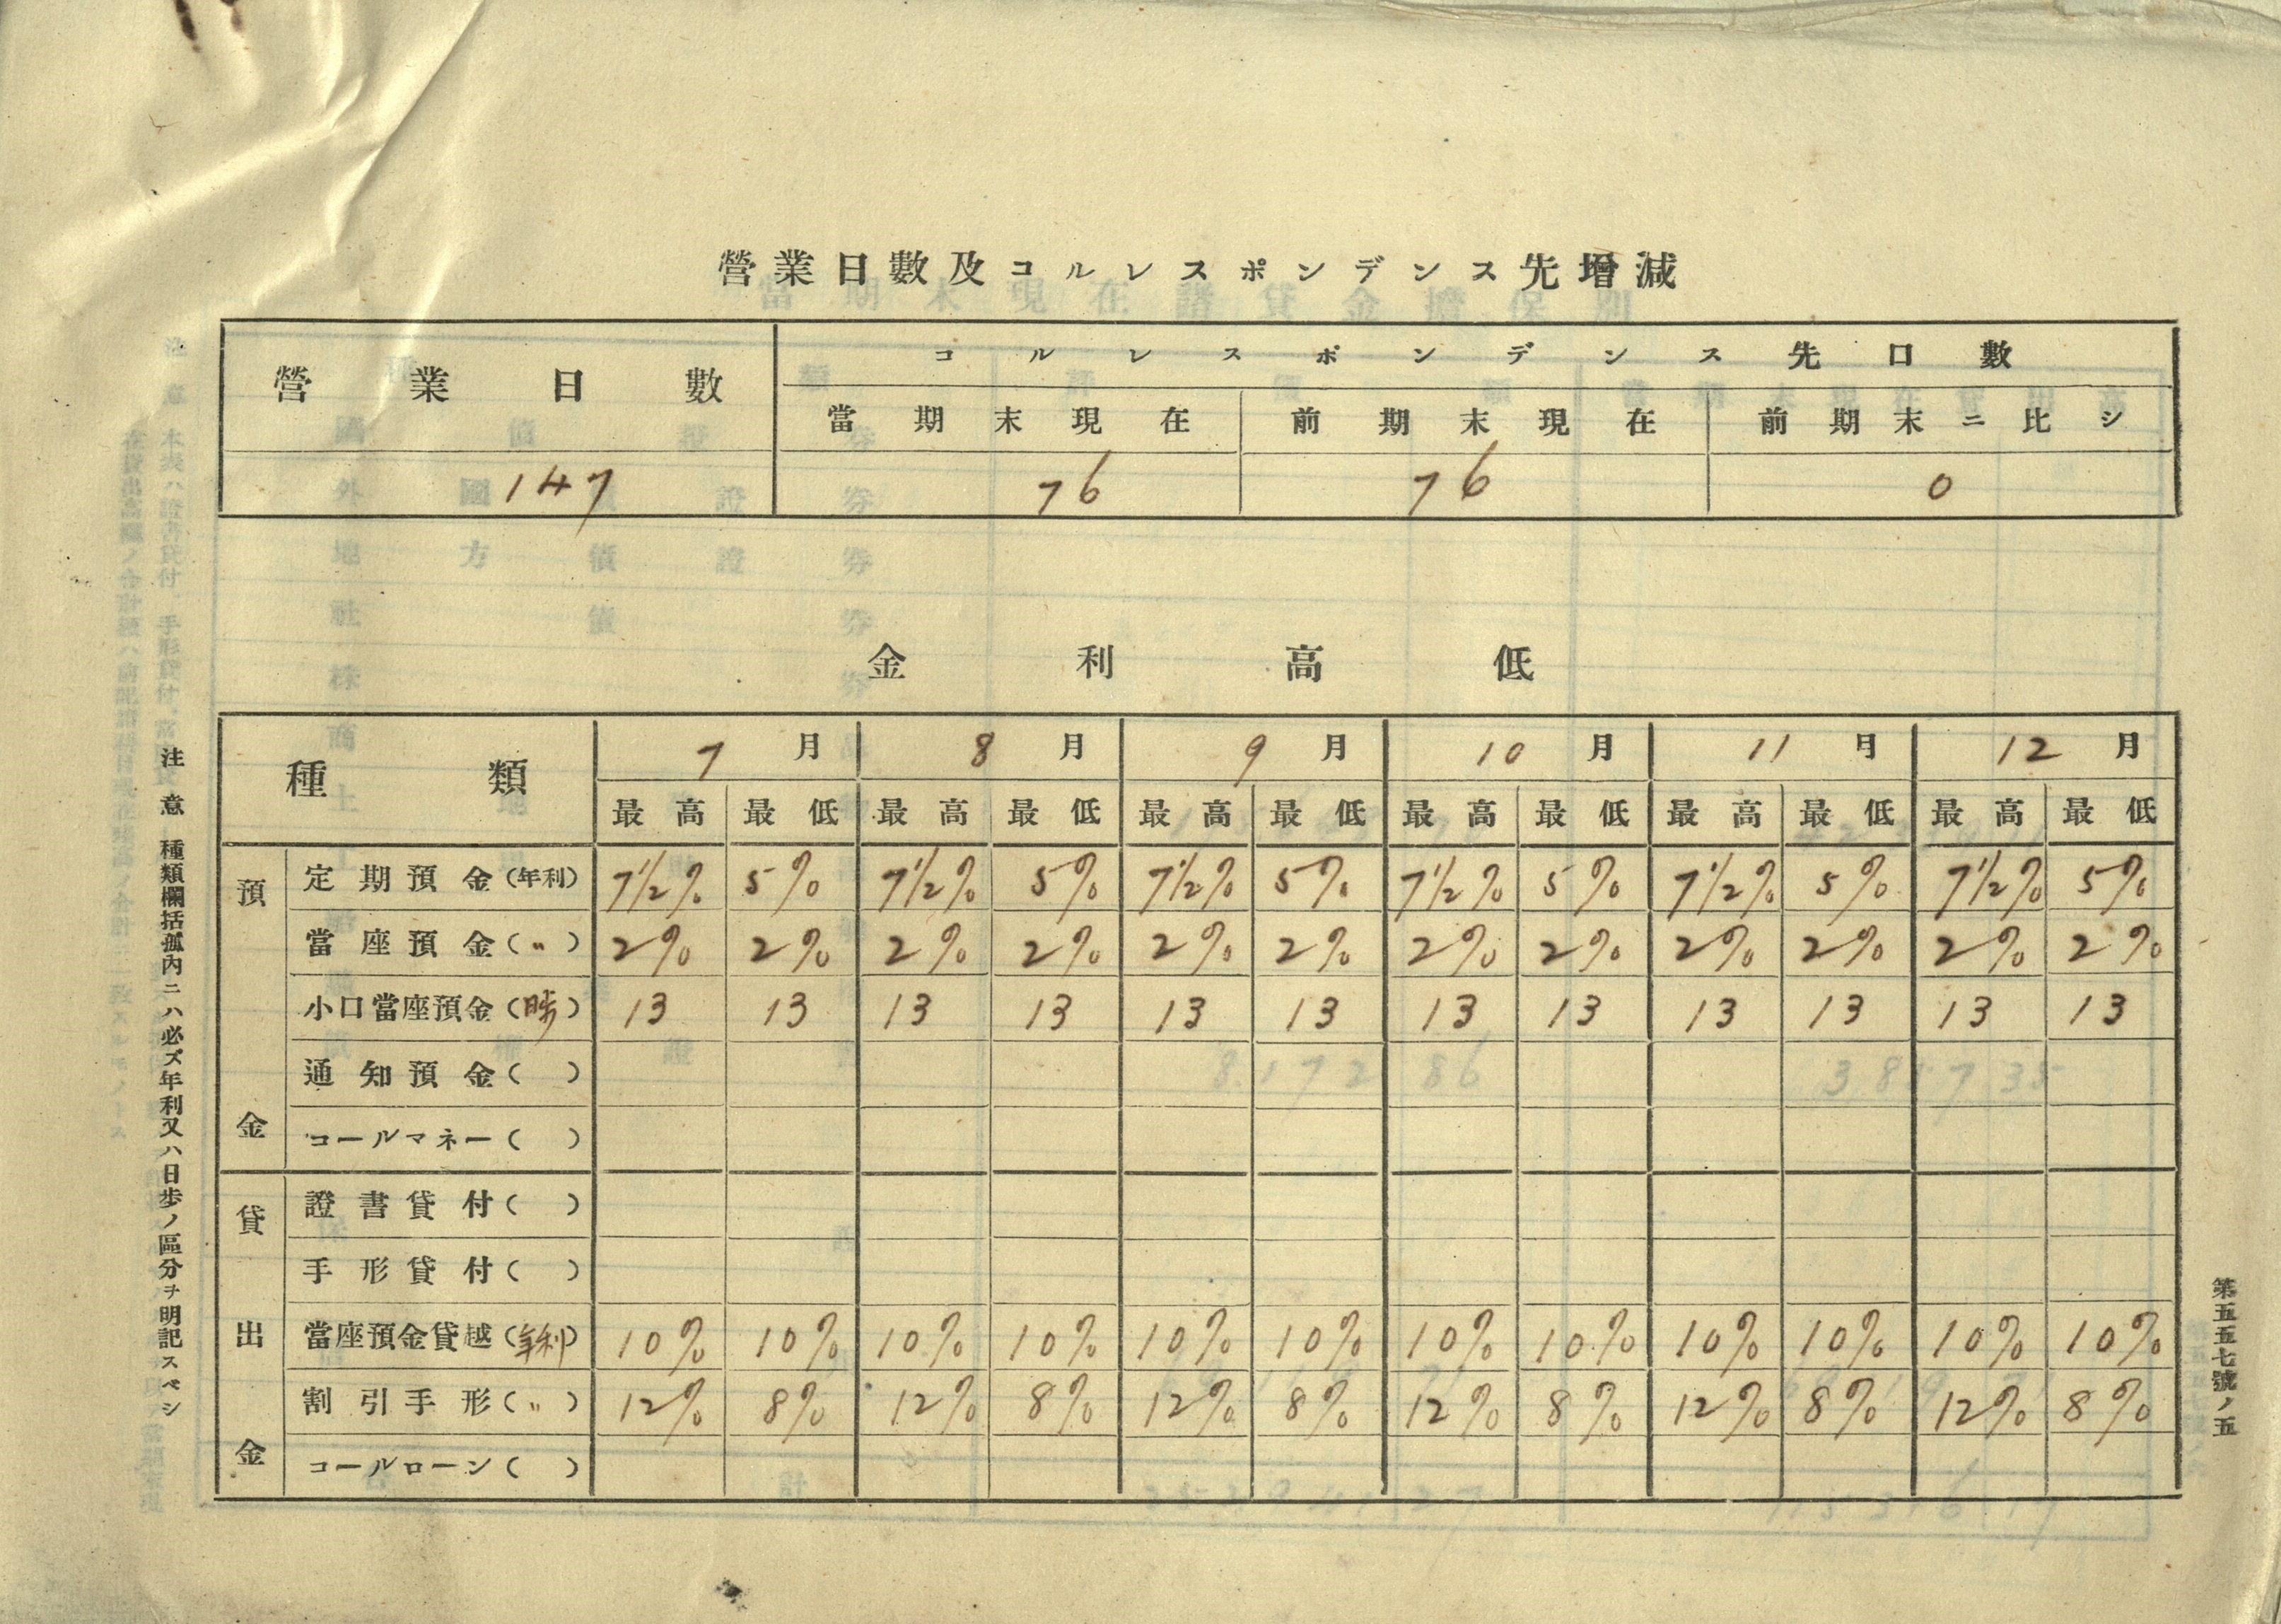 營業日數及コルレスポンデンス先增減
營業日數 コルレスポンデンス先口數
當期末現在 前期末現在 前期末ニ比シ
147 76 76 0
金利高低
種類 7月 8月 9月 10月 11月 12月
最高 最低 最高 最低 最高 最低 最高 最低 最高 最低 最高 最低
預金
定期預金(年利) 7½% 5% 7½% 5% 7½% 5% 7½% 5% 7½% 5% 7½% 5%
當座預金(〃) 2% 2% 2% 2% 2% 2% 2% 2% 2% 2% 2% 2%
小口當座預金(日歩) 13 13 13 13 13 13 13 13 13 13 13 13
通知預金( )
コールマネー( )
貸出金
證書貸付( )
手形貸付( )
當座預金貸越(年利) 10% 10% 10% 10% 10% 10% 10% 10% 10% 10% 10% 10%
割引手形(〃) 12% 8% 12% 8% 12% 8% 12% 8% 12% 8% 12% 8%
コールローン( )
注意 種類欄括孤內ニハ必ズ年利又ハ日歩ノ區分ヲ明記スベシ
第五五七號ノ五